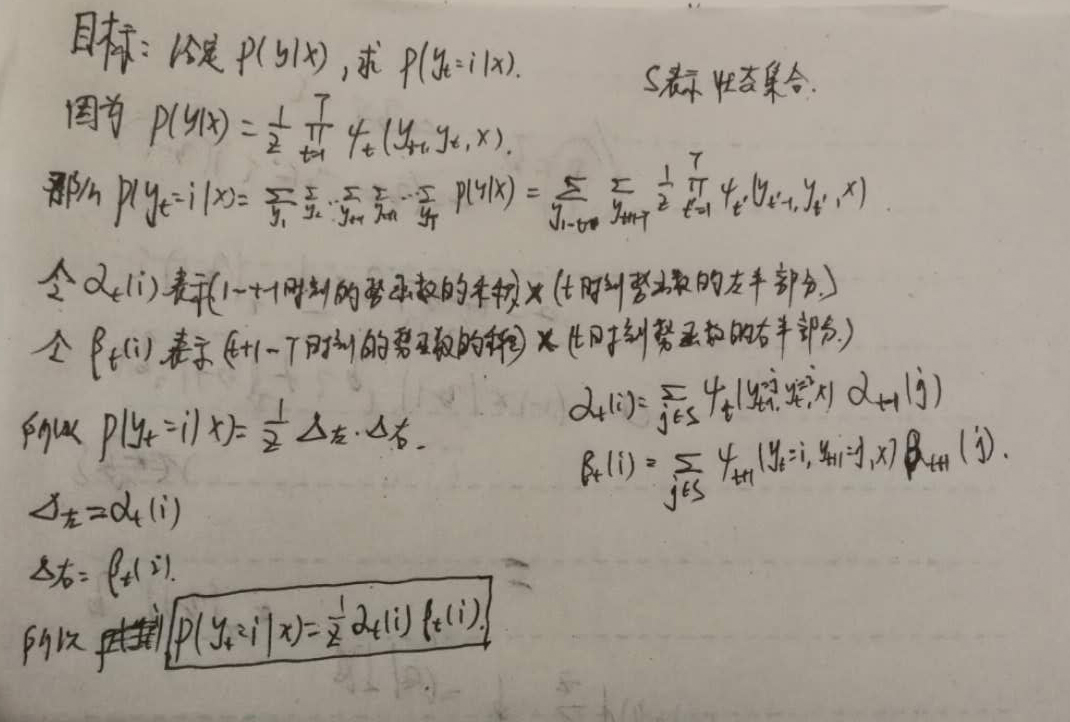 目标：给定 P(y|x), 求 P(y_t=i|x).
S表示状态集合.
因为 P(y|x) = 1/Z ∏_{t=1}^{T} ψ_t(y_{t-1}, y_t, x).
那么 P(y_t=i|x) = Σ_{y_1} Σ_{y_2} ... Σ_{y_{t-1}} Σ_{y_{t+1}} ... Σ_{y_T} P(y|x) = Σ_{y_{1~t-1}} Σ_{y_{t+1~T}} 1/Z ∏_{t'=1}^{T} ψ_{t'}(y_{t'-1}, y_{t'}, x)
令 α_t(i) 表示(1~t-1时刻的势函数的乘积) × (t时刻势函数的左半部分.)
令 β_t(i) 表示 (t+1~T时刻的势函数的乘积) × (t时刻势函数的右半部分.)
所以 P(y_t=i|x) = 1/Z Δ左·Δ右.
α_t(i) = Σ_{j∈S} ψ_t(y_{t-1}=j, y_t=i, x) α_{t-1}(j)
β_t(i) = Σ_{j∈S} ψ_{t+1}(y_t=i, y_{t+1}=j, x) β_{t+1}(j).
Δ左 = α_t(i)
Δ右 = β_t(i).
所以 P(y_t=i|x) = 1/Z α_t(i) β_t(i).